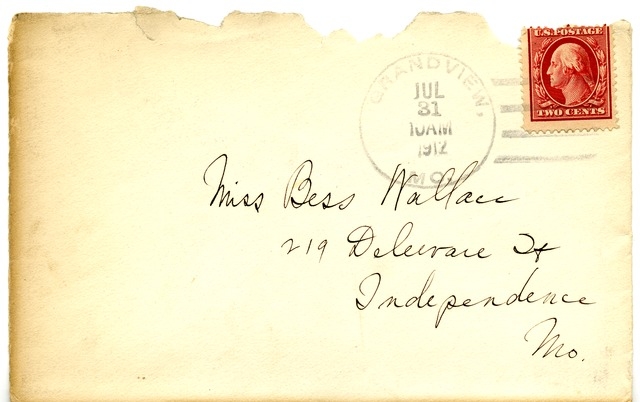 U.S. POSTAGE
TWO CENTS
GRANDVIEW,
JUL
31
10AM
1912
MO.
Miss Bess Wallace
219 Deleware St
Independence
Mo.